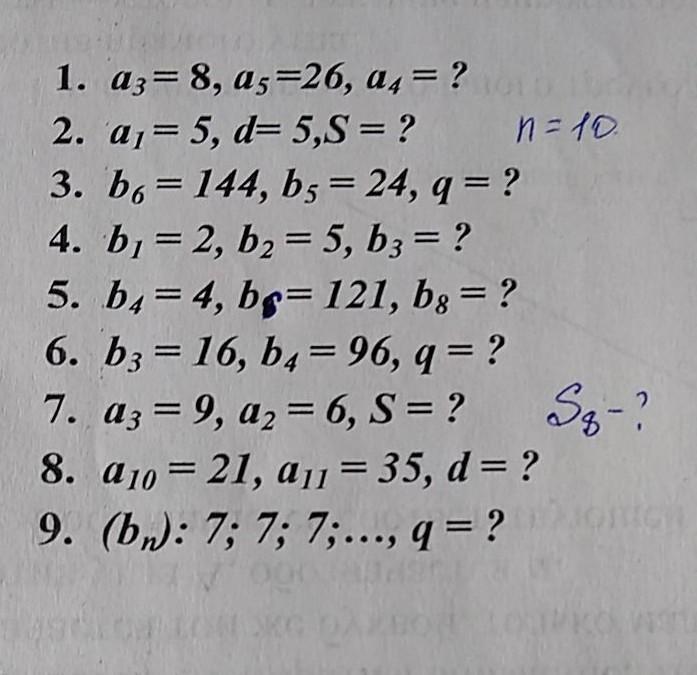 1. a₃= 8, a₅=26, a₄= ?
2. a₁= 5, d= 5,S= ? n=10.
3. b₆= 144, b₅= 24, q= ?
4. b₁= 2, b₂= 5, b₃= ?
5. b₄= 4, b₆= 121, b₈= ?
6. b₃= 16, b₄= 96, q= ?
7. a₃= 9, a₂= 6, S= ? S₈-?
8. a₁₀= 21, a₁₁= 35, d= ?
9. (bₙ): 7; 7; 7;..., q= ?